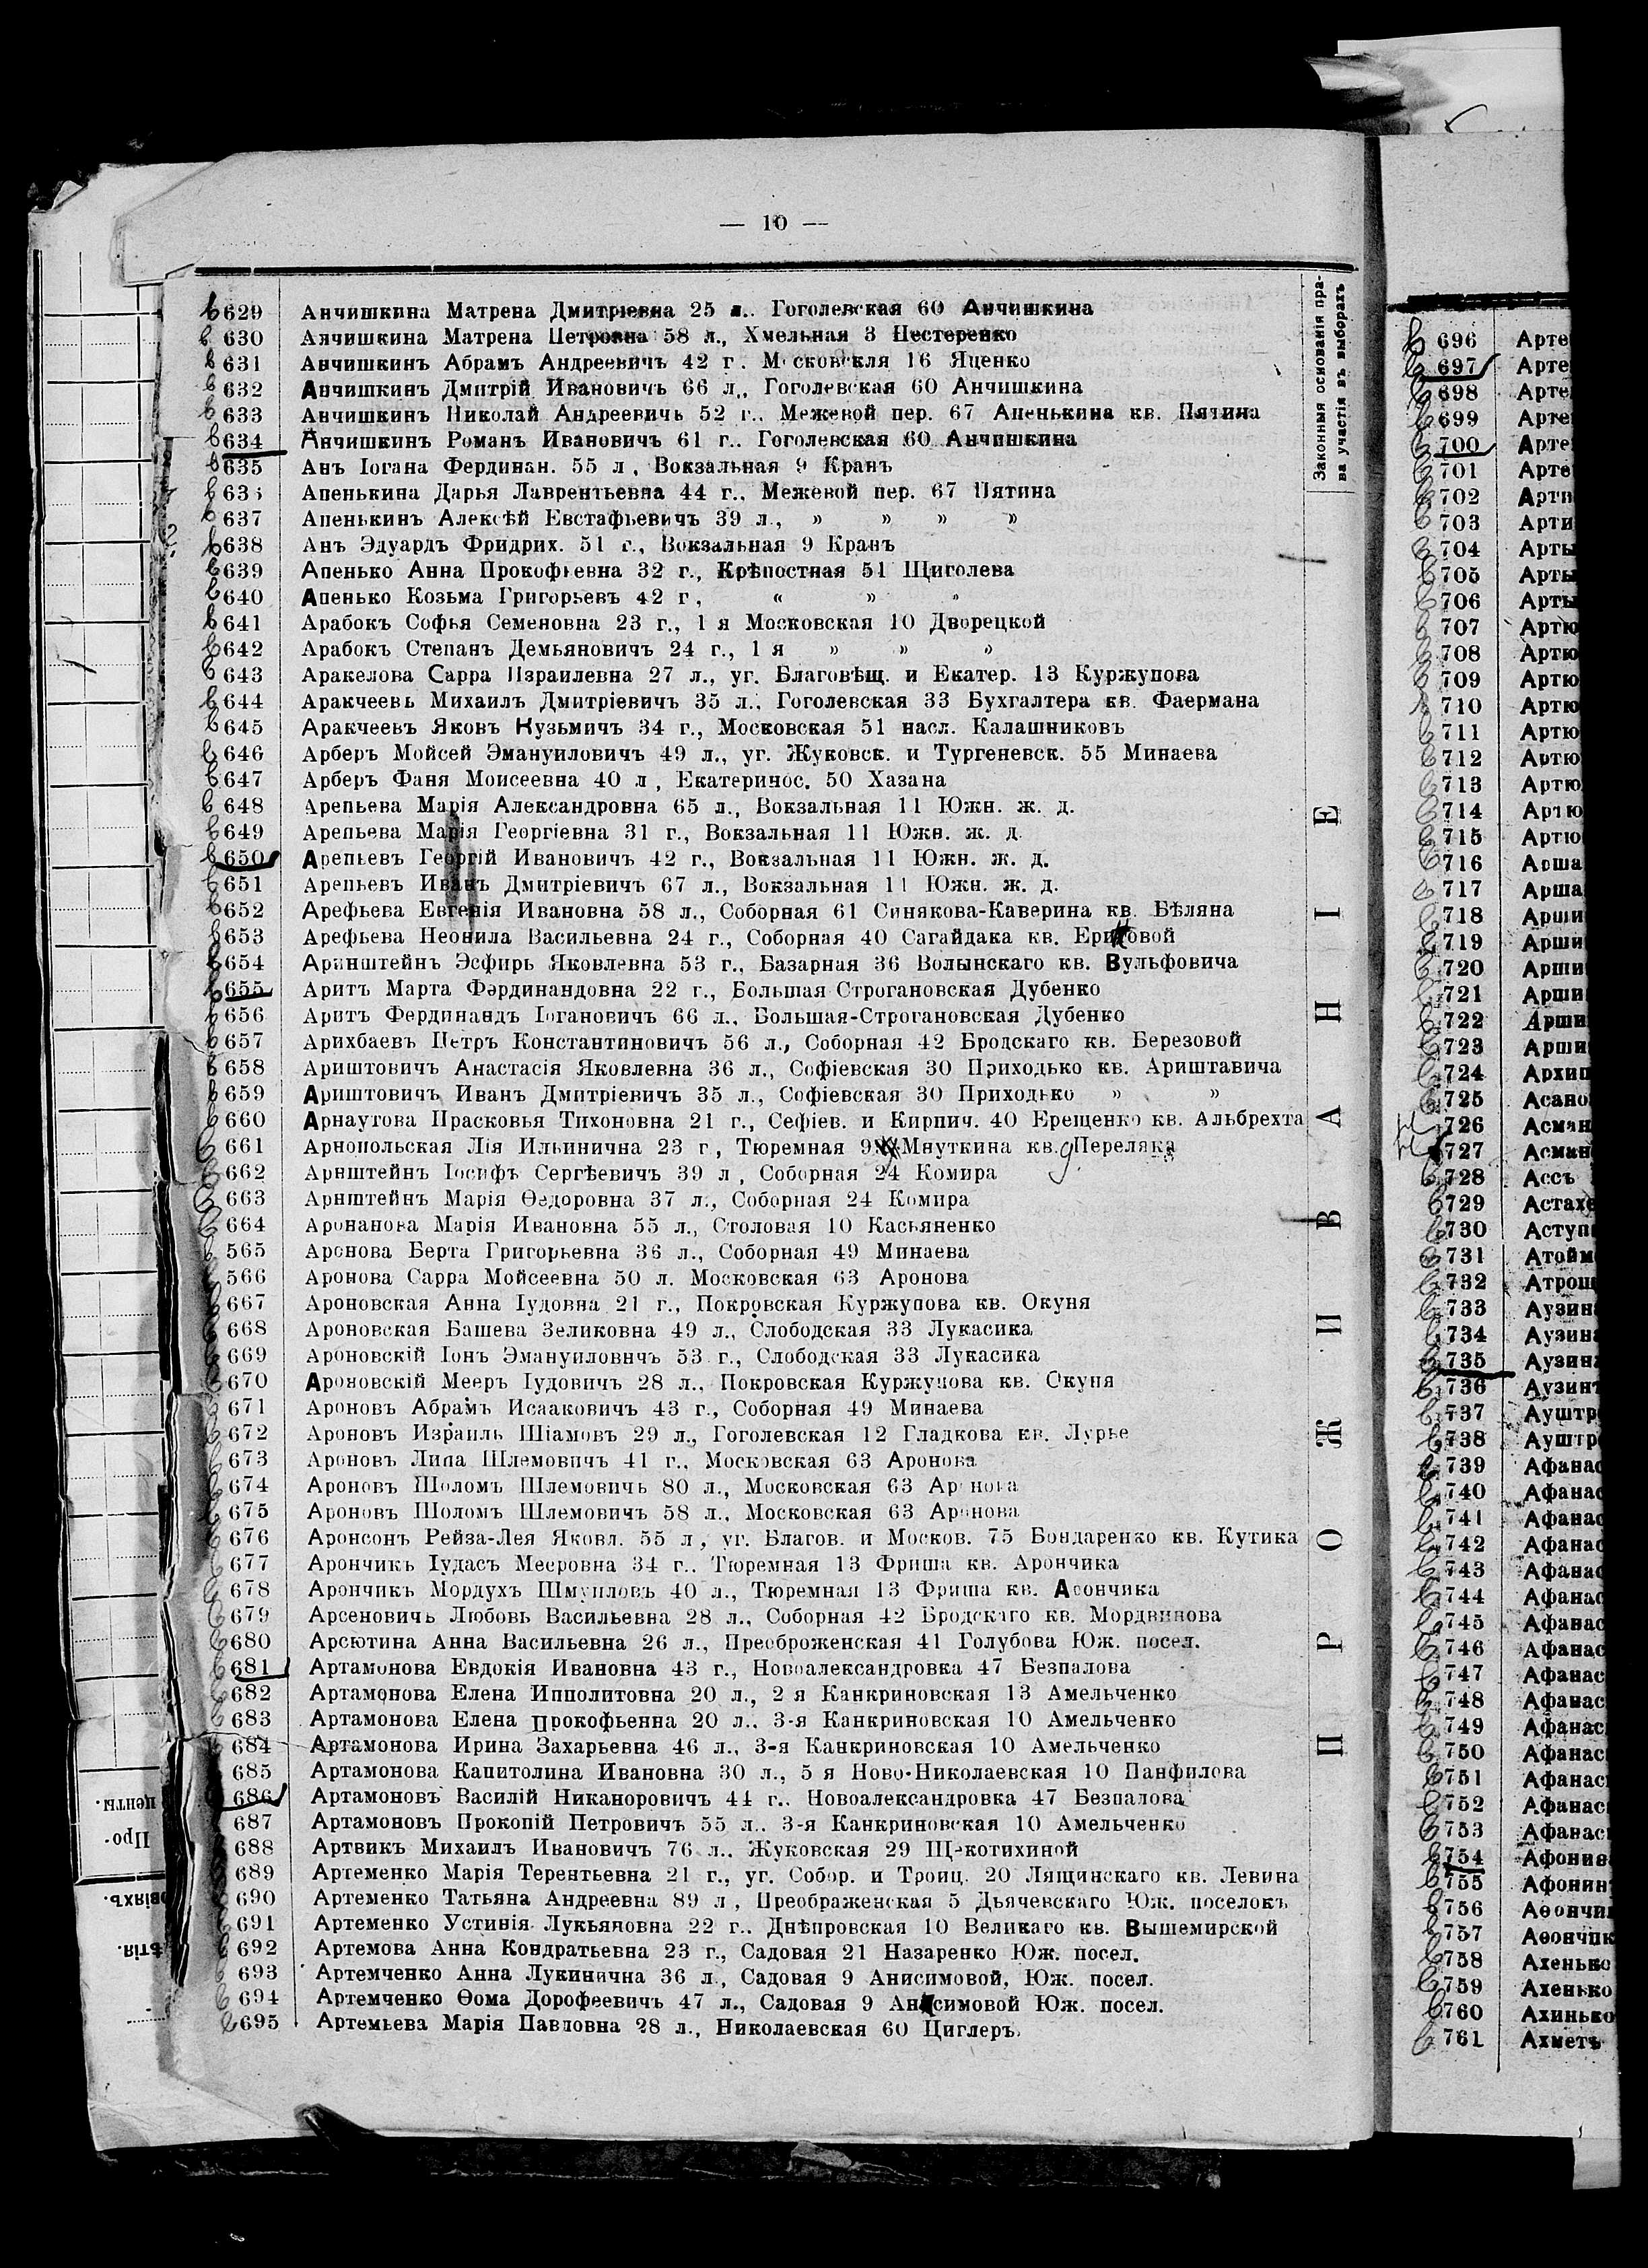 — 10 —
Законныя основанія пра-
ва участія въ выборахъ
ПРОЖИВАНІЕ
629 Анчишкина Матрена Дмитріевна 25 л.. Гоголевская 60 Анчишкина
630 Анчишкина Матрена Петровна 58 л., Хмельная 3 Нестеренко
631 Анчишкинъ Абрамъ Андреевичъ 42 г. Московскля 16 Яценко
632 Анчишкинъ Дмитрій Ивановичъ 66 л., Гоголевская 60 Анчишкина
633 Анчишкинъ Николай Андреевичь 52 г., Межевой пер. 67 Апенькина кв. Пятина
634 Анчишкинъ Романъ Ивановичъ 61 г.. Гоголевская 60 Анчишкина
635 Анъ Іогана Фердинан. 55 л, Вокзальная 9 Кранъ
636 Апенькина Дарья Лаврентьевна 44 г., Межевой пер. 67 Пятина
637 Апенькинъ Алексѣй Евстафьевичъ 39 л., » » » »
638 Анъ Эдуардъ Фридрих. 51 г., Вокзальная 9 Кранъ
639 Апенько Анна Прокофьевна 32 г., Крѣпостная 51 Щиголева
640 Апенько Козьма Григорьевъ 42 г, « » »
641 Арабокъ Софья Семеновна 23 г., 1 я Московская 10 Дворецкой
642 Арабокъ Степанъ Демьяновичъ 24 г., 1 я » » »
643 Аракелова Сарра Израилевна 27 л., уг. Благовѣщ. и Екатер. 13 Куржупова
644 Аракчеевь Михаилъ Дмитріевичъ 35 л., Гоголевская 33 Бухгалтера кв. Фаермана
645 Аракчеевъ Яковъ Кузьмичъ 34 г., Московская 51 насл. Калашниковъ
646 Арберъ Мойсей Эмануиловичъ 49 л., уг. Жуковск. и Тургеневск. 55 Минаева
647 Арберъ Фаня Моисеевна 40 л, Екатеринос. 50 Хазана
648 Арепьева Марія Александровна 65 л., Вокзальная 11 Южн. ж. д.
649 Арепьева Марія Георгіевна 31 г., Вокзальная 11 Южн. ж. д.
650 Арепьевъ Георгій Ивановичъ 42 г., Вокзальная 11 Южн. ж. д.
651 Арепьевъ Иванъ Дмитріевичъ 67 л., Вокзальная 11 Южн. ж. д.
652 Арефьева Евгенія Ивановна 58 л., Соборная 61 Синякова-Каверина кв. Бѣляна
653 Арефьева Неонила Васильевна 24 г., Соборная 40 Сагайдака кв.
654 Аринштейнъ Эсфирь Яковлевна 53 г., Базарная 36 Волынскаго кв. Вульфовича
655 Аритъ Марта Фердинандовна 22 г., Большая Строгановская Дубенко
656 Аритъ Фердинандъ Іогановичъ 66 л., Большая-Строгановская Дубенко
657 Арихбаевъ Петръ Константиновичъ 56 л., Соборная 42 Бродскаго кв. Березовой
658 Ариштовичъ Анастасія Яковлевна 36 л., Софіевская 30 Приходько кв. Ариштавича
659 Ариштовичъ Иванъ Дмитріевичъ 35 л., Софіевская 30 Приходько » »
660 Арнаутова Прасковья Тихоновна 21 г., Сефіев. и Кирпич. 40 Ерещенко кв. Альбрехта
661 Арнопольская Лія Ильинична 23 г, Тюремная 9 Мнуткина кв. Переляка
662 Арнштейнъ Іосифъ Сергѣевичъ 39 л, Соборная 24 Комира
663 Арнштейнъ Марія Ѳедоровна 37 л., Соборная 24 Комира
664 Аронанова Марія Ивановна 55 л., Столовая 10 Касьяненко
565 Аронова Берта Григорьевна 36 л., Соборная 49 Минаева
566 Аронова Сарра Мойсеевна 50 л. Московская 63 Аронова
667 Ароновская Анна Іудовна 21 г., Покровская Куржупова кв. Окуня
668 Ароновская Башева Зеликовна 49 л., Слободская 33 Лукасика
669 Ароновскій Іонъ Эмануиловичъ 53 г., Слободская 33 Лукасика
670 Ароновскій Мееръ Іудовичъ 28 л., Покровская Куржупова кв. Окуня
671 Ароновъ Абрамъ Исааковичъ 43 г., Соборная 49 Минаева
672 Ароновъ Израиль Шіамовъ 29 л., Гоголевская 12 Гладкова кв. Лурье
673 Ароновъ Липа Шлемовичъ 41 г., Московская 63 Аронова
674 Ароновъ Шоломъ Шлемовичъ 80 л., Московская 63 Аронова
675 Ароновъ Шоломъ Шлемовичъ 58 л., Московская 63 Аронова
676 Аронсонъ Рейза-Лея Яковл. 55 л, уг. Благов. и Москов. 75 Бондаренко кв. Кутика
677 Арончикъ Іудасъ Мееровна 34 г.. Тюремная 13 Фриша кв. Арончика
678 Арончикъ Мордухъ Шмуиловъ 40 л., Тюремная 13 Фриша кв. Асончика
679 Арсеновичь Любовь Васильевна 28 л., Соборная 42 Бродскаго кв. Мордвинова
680 Арсютина Анна Васильевна 26 л., Преоброженская 41 Голубова Юж. посел.
681 Артамонова Евдокія Ивановна 43 г., Новоалександровка 47 Безпалова
682 Артамонова Елена Ипполитовна 20 л., 2 я Канкриновская 13 Амельченко
683 Артамонова Елена Прокофьенна 20 л.. 3-я Канкриновская 10 Амельченко
684 Артамонова Ирина Захарьевна 46 л., 3-я Канкриновская 10 Амельченко
685 Артамонова Капитолина Ивановна 30 л., 5 я Ново-Николаевская 10 Панфилова
686 Артамоновъ Василій Никаноровичъ 44 г.. Новоалександровка 47 Безпалова
687 Артамоновъ Прокопій Петровичъ 55 л.. 3-я Канкриновская 10 Амельченко
688 Артвикъ Михаилъ Ивановичъ 76 л.. Жуковская 29 Щекотихиной
689 Артеменко Марія Терентьевна 21 г., уг. Собор. и Троиц. 20 Лящинскаго кв. Левина
690 Артеменко Татьяна Андреевна 89 л, Преображенская 5 Дьячевскаго Юж. поселокъ
691 Артеменко Устинія Лукьяновна 22 г.. Днѣпровская 10 Великаго кв. Вышемирской
692 Артемова Анна Кондратьевна 23 г., Садовая 21 Назаренко Юж. посел.
693 Артемченко Анна Лукинична 36 л., Садовая 9 Анисимовой, Юж. посел.
694 Артемченко Ѳома Дорофеевичъ 47 л., Садовая 9 Анисимовой Юж. посел.
695 Артемьева Марія Павловна 28 л., Николаевская 60 Циглеръ.
696 Арте
697 Арте
698 Арте
699 Арте
700 Арте
701 Арте
702 Арти
703 Арти
704 Арты
705 Арты
706 Арты
707 Артю
708 Артю
709 Артю
710 Артю
711 Артю
712 Артю
713 Артю
714 Артю
715 Артю
716 Арша
717 Арша
718 Арши
719 Арши
720 Арши
721 Арши
722 Арши
723 Арши
724 Архип
725 Асано
726 Асман
727 Асман
728 Ассъ
729 Астахе
730 Аступ
731 Атойм
732 Атрош
733 Аузин
734 Аузина
735 Аузин
736 Аузинъ
737 Ауштр
738 Ауштр
739 Афанас
740 Афанас
741 Афанас
742 Афанас
743 Афанас
744 Афанас
745 Афанас
746 Афанас
747 Афанас
748 Афанас
749 Афанас
750 Афанас
751 Афанас
752 Афанас
753 Афанас
754 Афонин
755 Афонин
756 Аѳончи
757 Аѳончик
758 Ахенько
759 Ахенько
760 Ахинько
761 Ахметъ
Про-
центы.